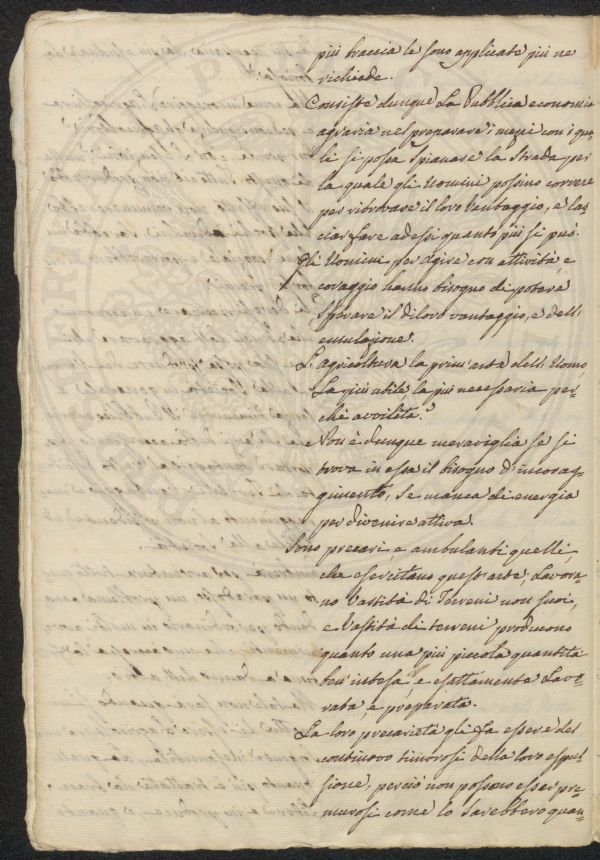 più braccia le sono applicate più ne
richiede.
Consiste dunque La Pubblica economia
agraria nel preparare i mezzi con i qua=
li si possa Spianare la Strada per
la quale gli Uomini possino correre
per ritrovare il loro Vantaggio, e la=
sciar fare ad essi quanto più si può.
Gli Uomini per agire con attività, e
coraggio hanno bisogno di potere
Sperare il di loro vantaggio, e dell'
emulazione.
L'agricoltura la prim'arte dell'Uomo
La più utile, la più necessaria per=
chè avvilita?
Non è dunque meraviglia se si
trova in essa il bisogno d'incorag=
gimento, Se manca di energia
per divenire attiva.
Sono precari e ambulanti quelli,
che esercitano quest'arte, Lavora=
no Vastità di Terreni non suoi,
e Vastità di terreni producono
quanto una più piccola quantità
ben intesa, e esattamente Lavo=
rata, e preparata.
La loro precarietà gli fa essere del
continuovo timorosi della loro espul=
sione, perciò non possono esser pre=
murosi come lo Sarebbero quan=